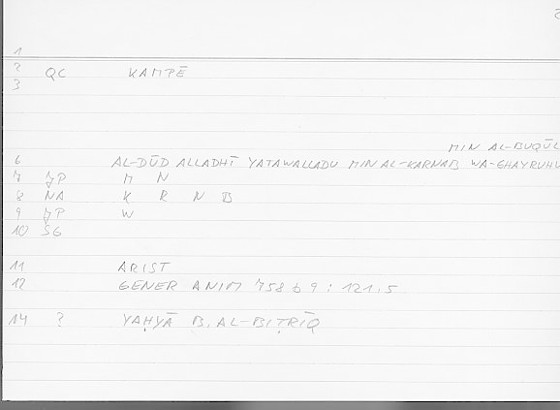 1
2 QC KAMPĒ
3
MIN AL-BUQŪL
6 AL-DŪD ALLADHĪ YATAWALLADU MIN AL-KARNAB WA-GHAYRUHU
7 JP M N
8 NA K R N B
9 JP W
10 SG
11 ARIST
12 GENER ANIM 758 b 9 : 121,5
14 ? YAḤYĀ B. AL-BIṬRĪQ